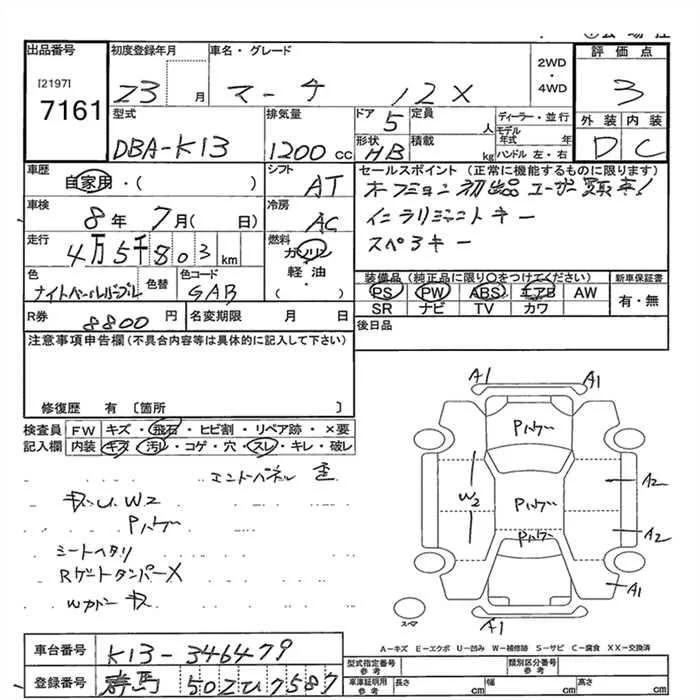 出品番号
[2197]
7161
初度登録年月
23 月
車名・グレード
マーチ 12X
2WD
・
4WD
評価点
3
外装 内装
D C
型式
DBA-K13
排気量
1200 cc
ドア 5
形状
HB
定員
人
積載
kg
ディーラー・並行
モデル年式 年
ハンドル 左・右
車歴
自家用・( )
シフト
AT
セールスポイント (正常に機能するものに限ります)
オークション初出品ユーザー買取車!
インテリジェントキー
スペアキー
車検
8年 7月( 日)
冷房
AC
走行
4万5千803 km
燃料
ガソリン
軽油・
( )
色
ナイトベールパープル
色替
色コード
GAB
装備品 (純正品に限り○をつけてください)
PS PW ABS エアB AW
SR ナビ TV カワ
新車保証書
有・無
R券 8800 円
名変期限 月 日
後日品
注意事項申告欄 (不具合内容等は具体的に記入して下さい)
修復歴 有 〔箇所 〕
検査員
記入欄
FW キズ・飛石・ヒビ割・リペア跡・×要
内装 キズ・汚レ・コゲ・穴・スレ・キレ・破レ
エンドパネル 歪
W2
Pハゲ
シートヘタリ
RゲートダンパーX
A1
A1
Pハゲ
W2
Pハゲ
Pハゲ
A2
A2
A1
A1
スマ
A-キズ E-エクボ U-凹み W-補修跡 S-サビ C-腐食 XX-交換済
車台番号
K13-346479
登録番号
群馬 502ひ7587
型式指定番号
参考
類別区分番号
参考
車庫証明用
参考
長さ cm
幅 cm
高さ cm